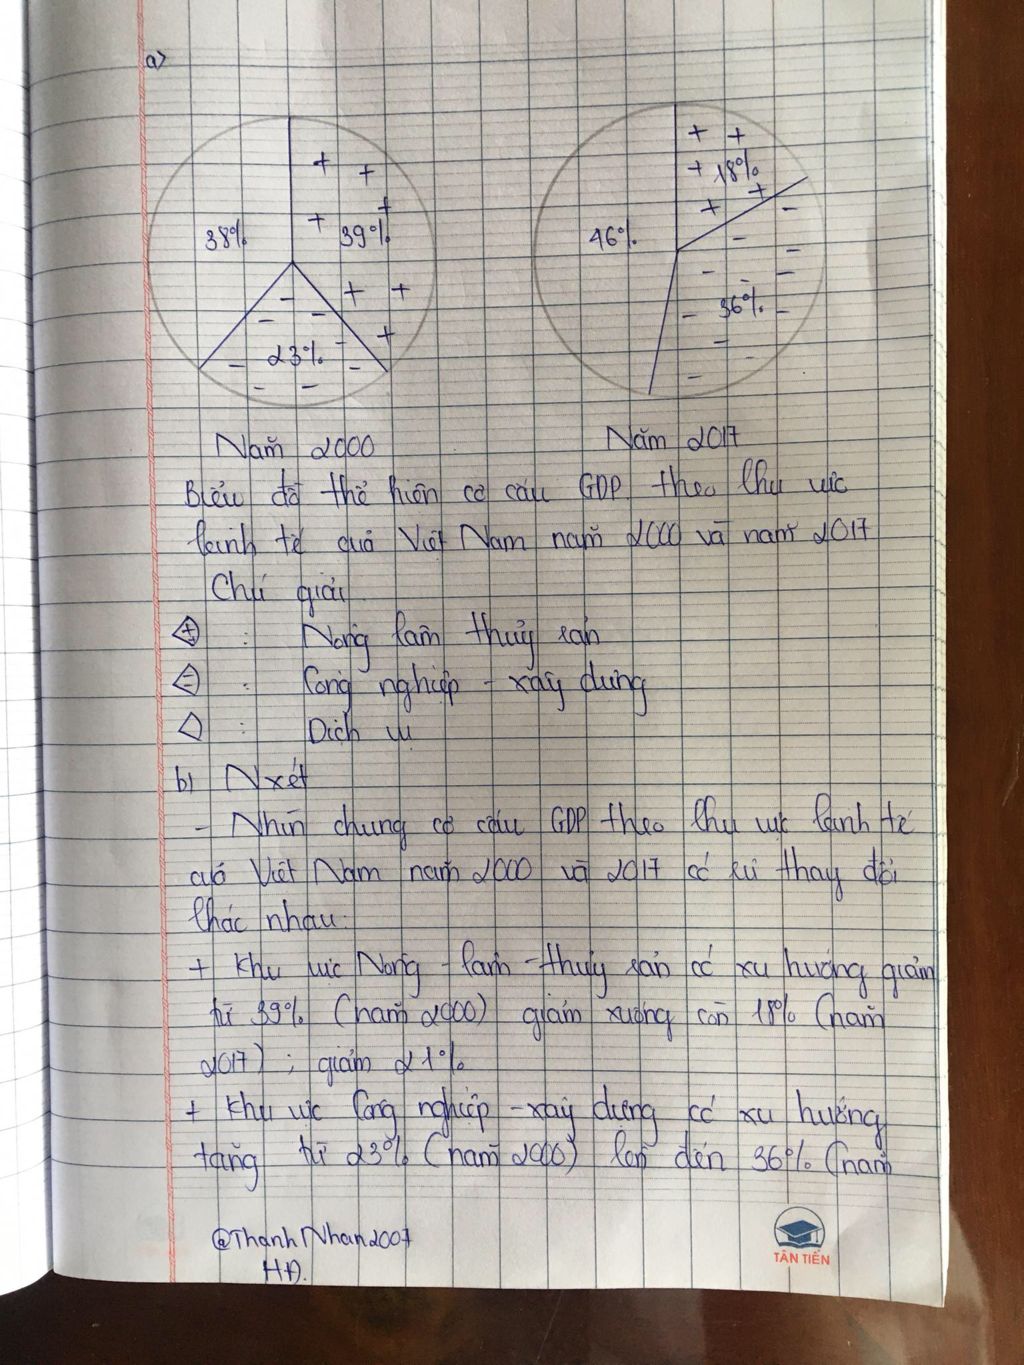 a)
38%
39%
23%
46%
18%
36%
Năm 2000
Năm 2017
Biểu đồ thể hiện cơ cấu GDP theo khu vực
kinh tế của Việt Nam năm 2000 và năm 2017
Chú giải
+ : Nông lâm thủy sản
- : Công nghiệp - xây dựng
: Dịch vụ
b) Nxét
- Nhìn chung cơ cấu GDP theo khu vực kinh tế
của Việt Nam năm 2000 và 2017 có sự thay đổi
khác nhau.
+ Khu vực Nông - lâm - thủy sản có xu hướng giảm
từ 39% (năm 2000) giảm xuống còn 18% (năm
2017) ; giảm 21%
+ Khu vực Công nghiệp - xây dựng có xu hướng
tăng từ 23% (năm 2000) lên đến 36% (năm
@ThanhNhan2007
HĐ.
TÂN TIẾN